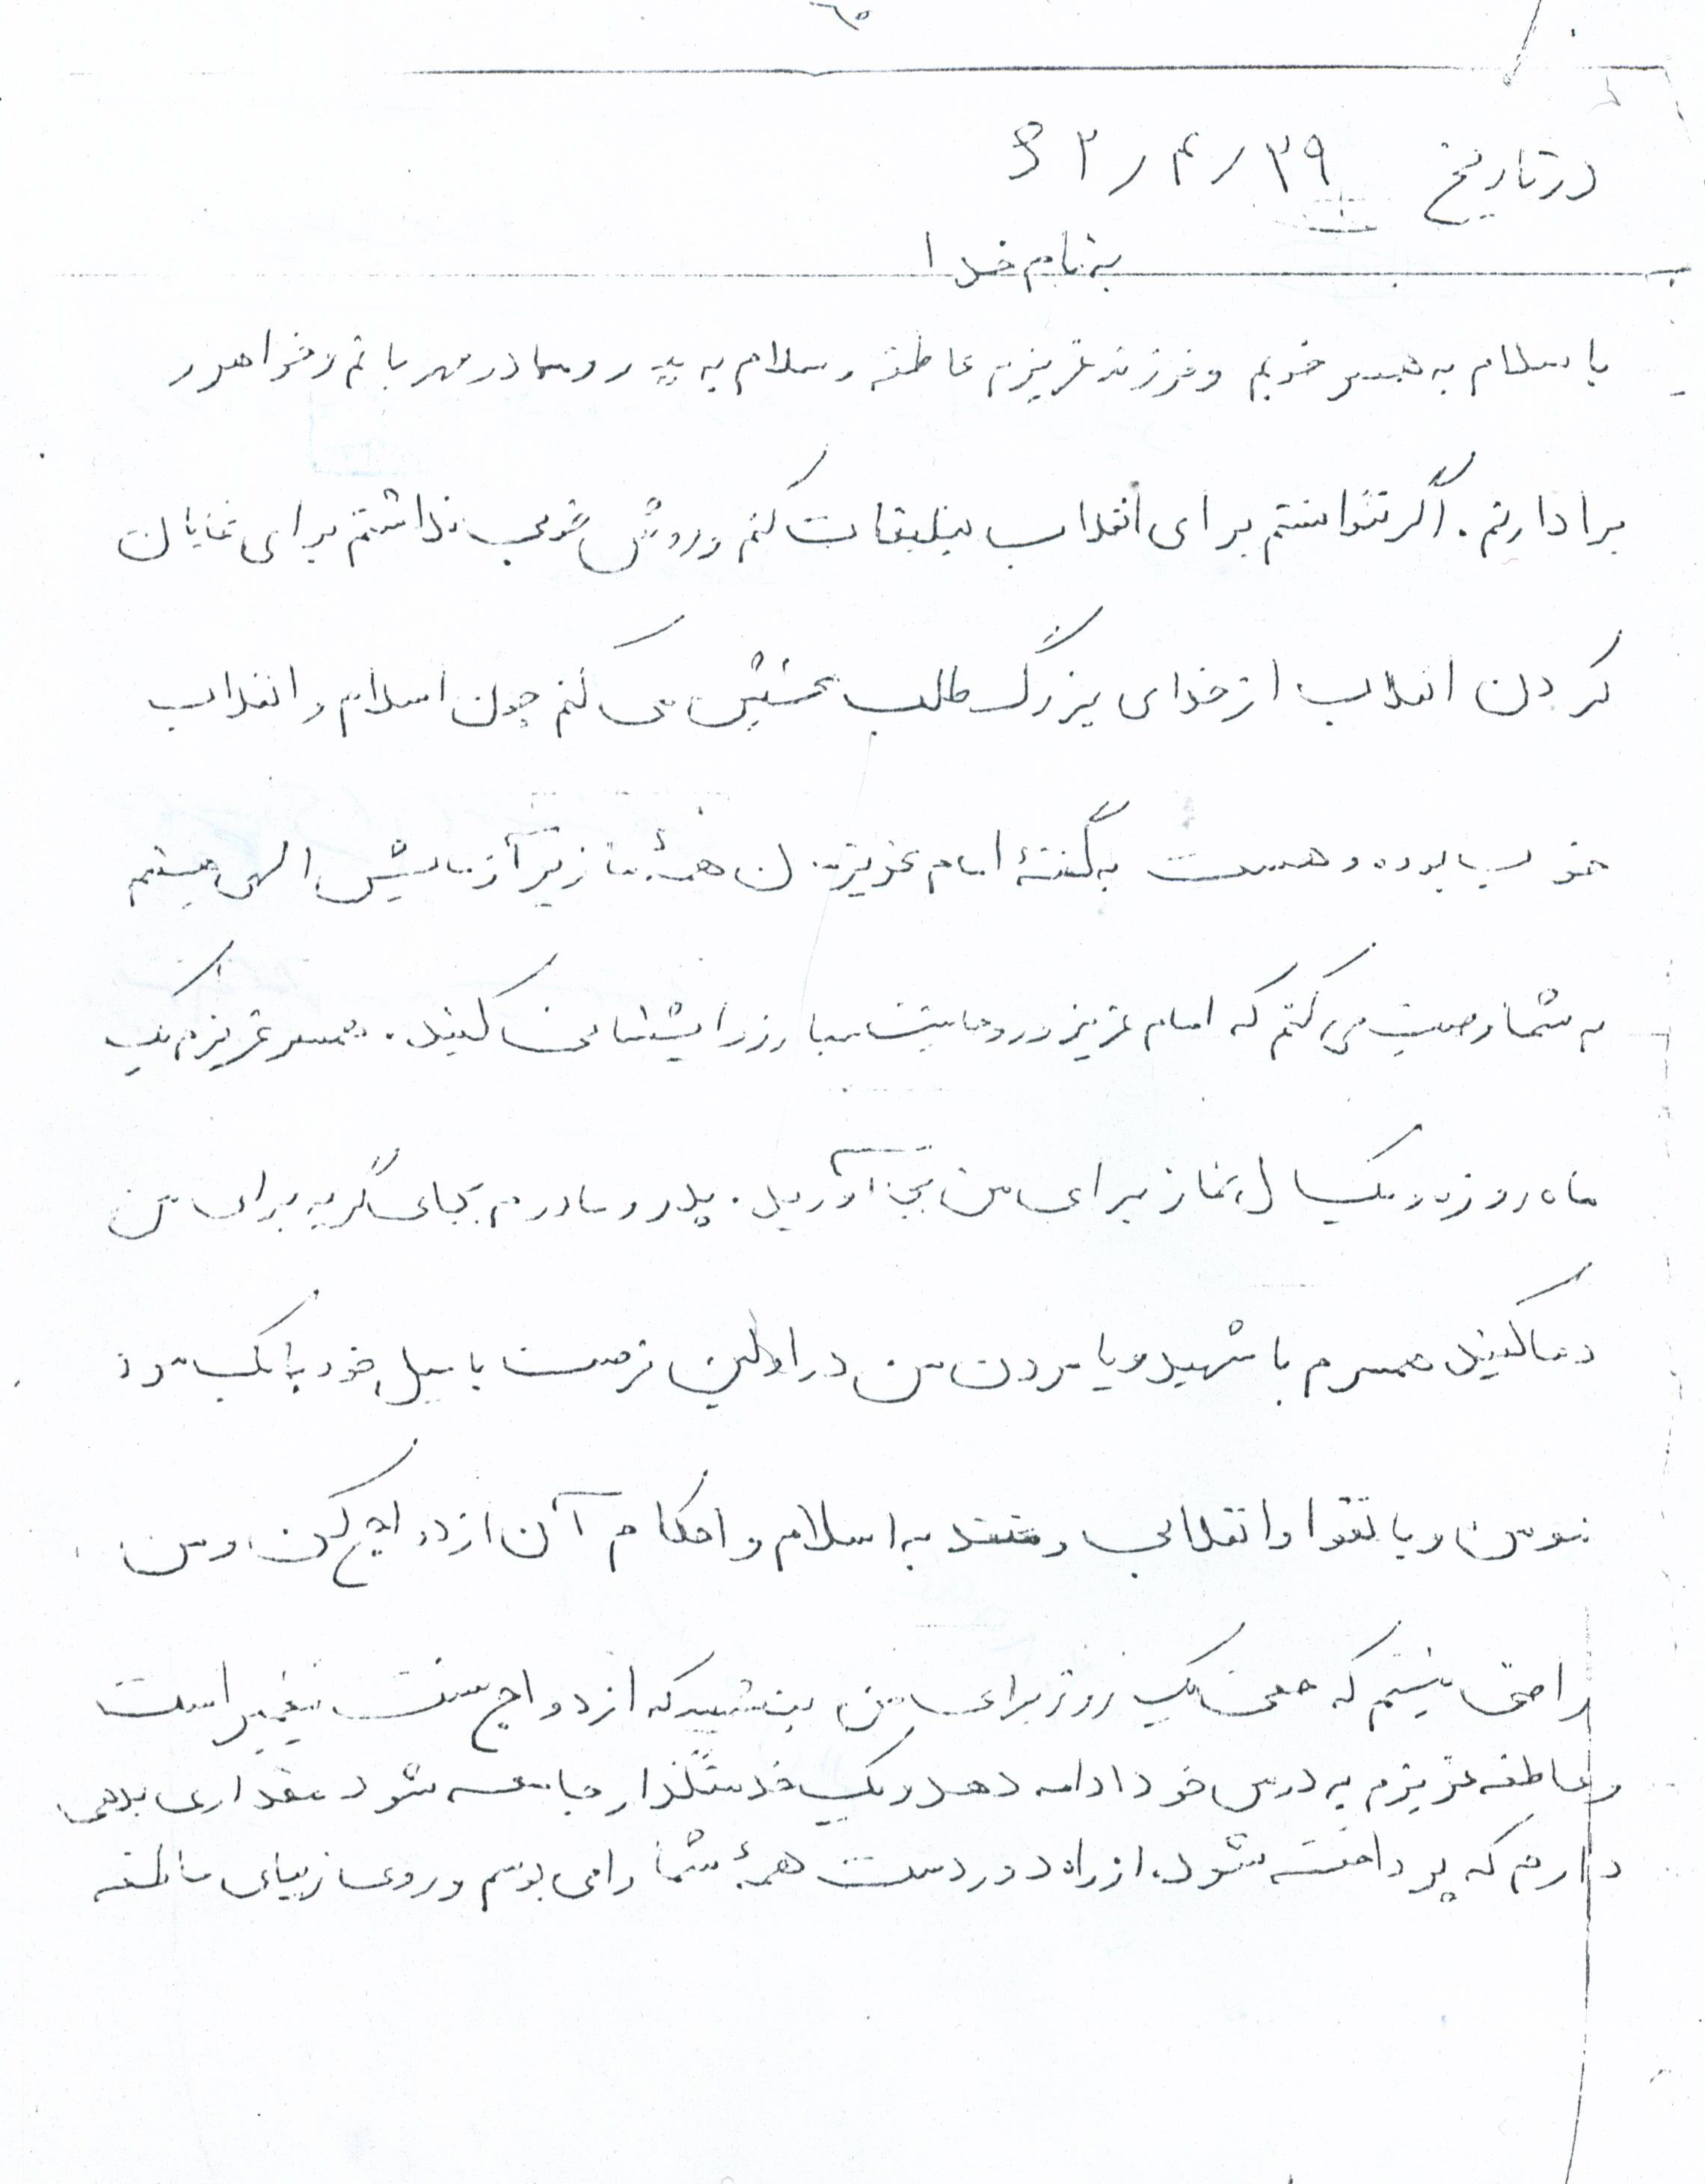 در تاریخ ۲۹ / ۴ / ۶۲
به نام خدا
با سلام به همسر خوبم و فرزند عزیزم عاطفه و سلام به پدر و مادر مهربانم و خواهر و
برادارنم . اگر نتوانستم برای انقلاب تبلیقات کنم و روش خوبی نداشتم برای نمایان
کردن انقلاب از خدای بزرگ طلب بخشش می کنم چون اسلام و انقلاب
خوب بوده و هست به گفتهٔ امام عزیزمان همهٔ ما زیر آزمایش الهی هستیم
به شما وصیت می کنم که امام عزیز و روحانیت مبارز را پشتیبانی کنید . همسر عزیزم یک
ماه روزه و یکسال نماز برای من بجا آورید . پدر و مادرم بجای گریه برای من
دعا کنید همسرم با شهید و یا مردن من در اولین فرصت با میل خود با یک مرد
مومن و با تقوا و انقلابی و معتقد به اسلام و احکام آن ازدواج کن و من
راضی نیستم که حتی یک روز برای من بنشینید که ازدواج سنت پیغمبر است
و عاطفه عزیزم به درس خود ادامه دهد و یک خدمتگذار جامعه شود مقداری بدهی
دارم که پرداخته شود . از راه دور دست همهٔ شما را می بوسم و روی زیبای عاطفه